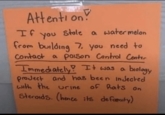 Attention!
If you stole a watermelon
from building 7, you need to
contact a Poison Control Center
Immediately! It was a biology
project and has been injected
with the urine of Rats on
steroids. (hence its deformity)